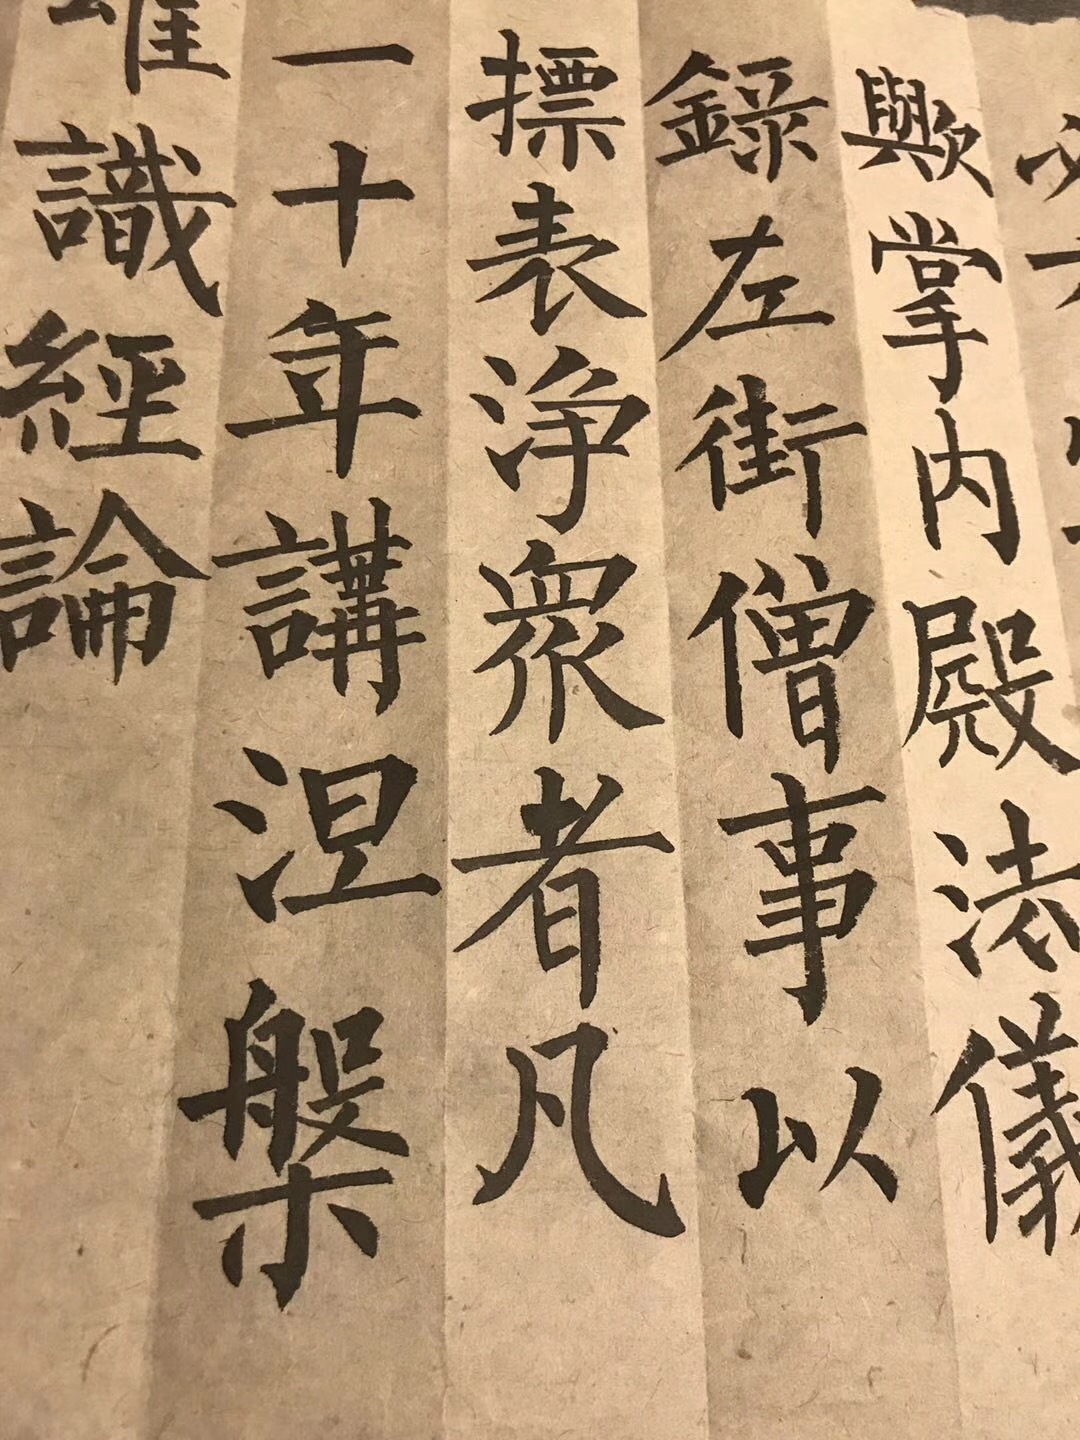 歟掌内殿法儀
錄左街僧事以
摽表淨衆者凡
一十年講涅槃
唯識經論